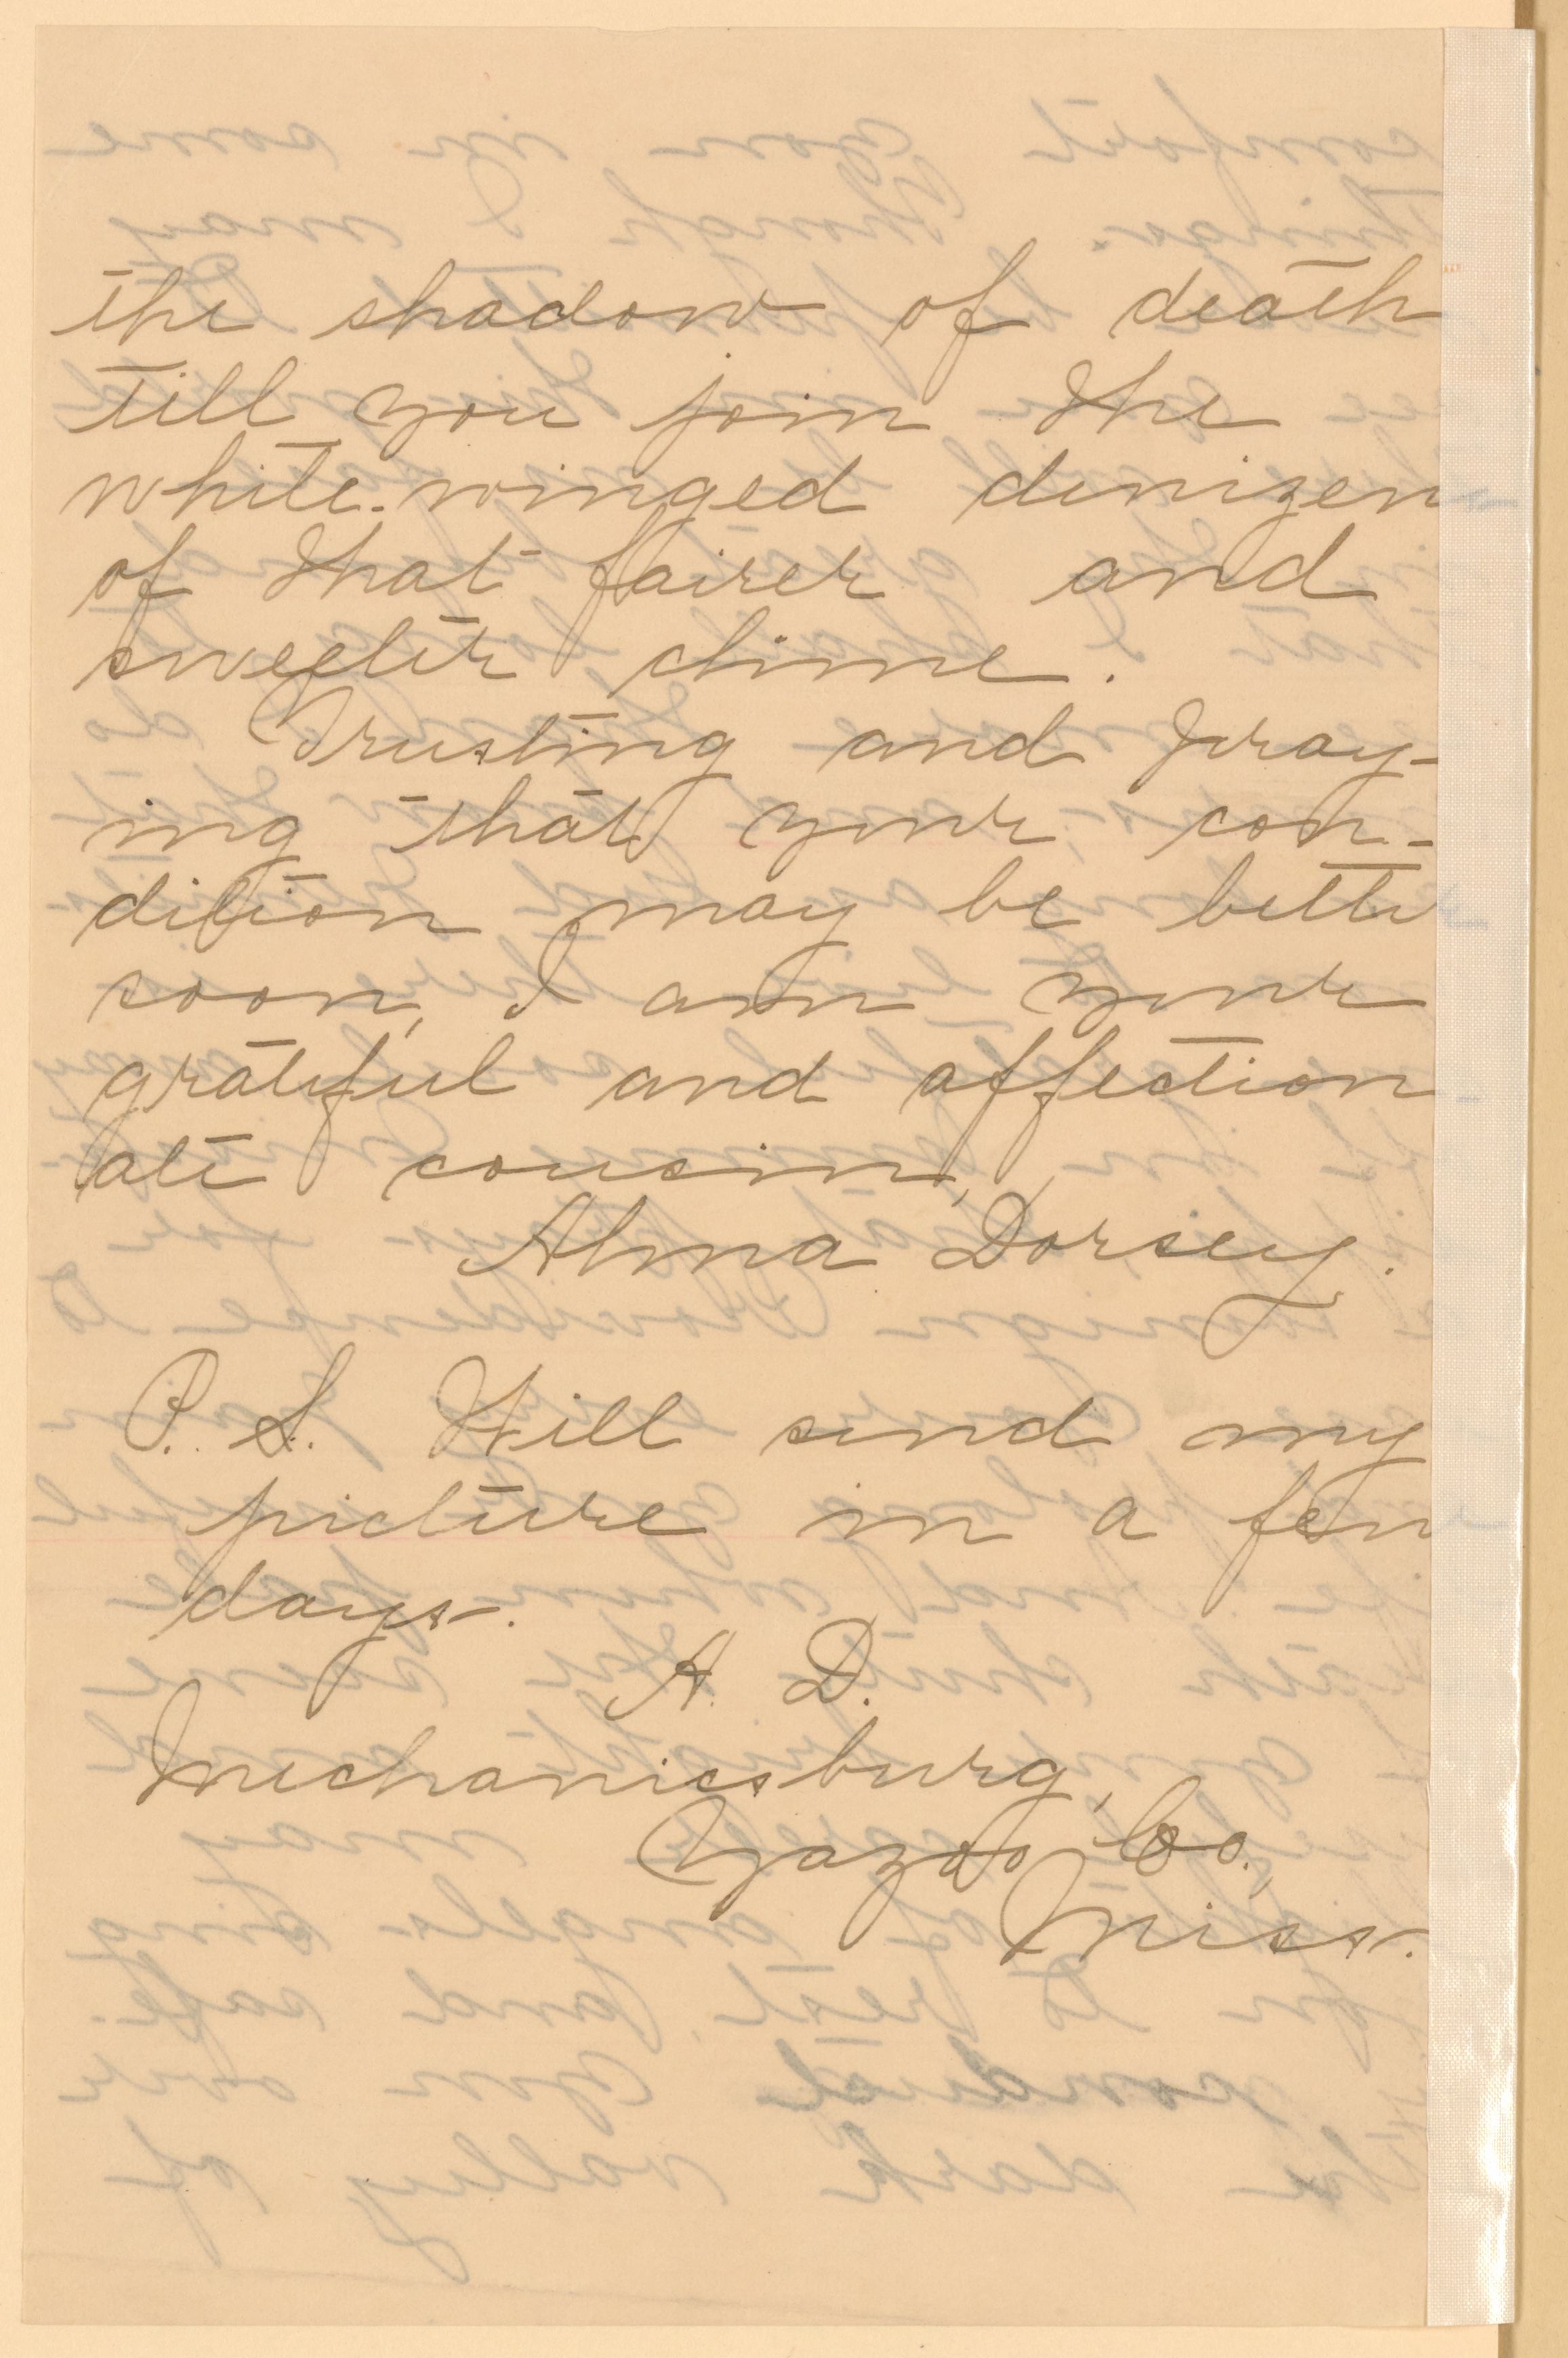 the shadow of death
till you join the
white-winged denizens
of that fairer and
sweeter clime.
Trusting and pray-
ing that your con-
dition may be better
soon, I am your
grateful and affection
ate cousin,
Alma Dorsey.
P. S. Will send my
picture in a few
days.
A. D.
Mechanicsburg,
Yazoo Co.,
Miss.